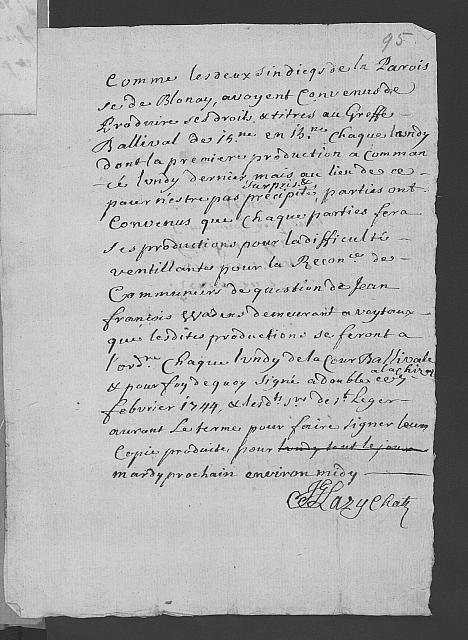 95.
Comme les deux sindicqs de la Parois
se, de Blonay, avoyent Convenus de
Produire ses droits, & titres au Greffe
Ballival de 15.ne en 15.ne Chaque lundy
dont la premiere production a comman
-cé lundy dernier, mais au lieu de ce
pour n'estre pas surpris & précipité, parties ont
Convenus que Chaque parties fera
ses productions pour la difficulté
ventillante pour la Recon.ce de
Communiers de question de Jean
françois demeurant a
que lesdites productions se feront a
l'ord.re Chaque lundy de la Cour Ballivale
& pour foy de quoy signé a double ce 7
febvrier 1744, & lesd.ts srs de st Leger
auront Le terme pour faire signer leur
Copie produite, pour lundy tout le jour
mardy prochain environ midy